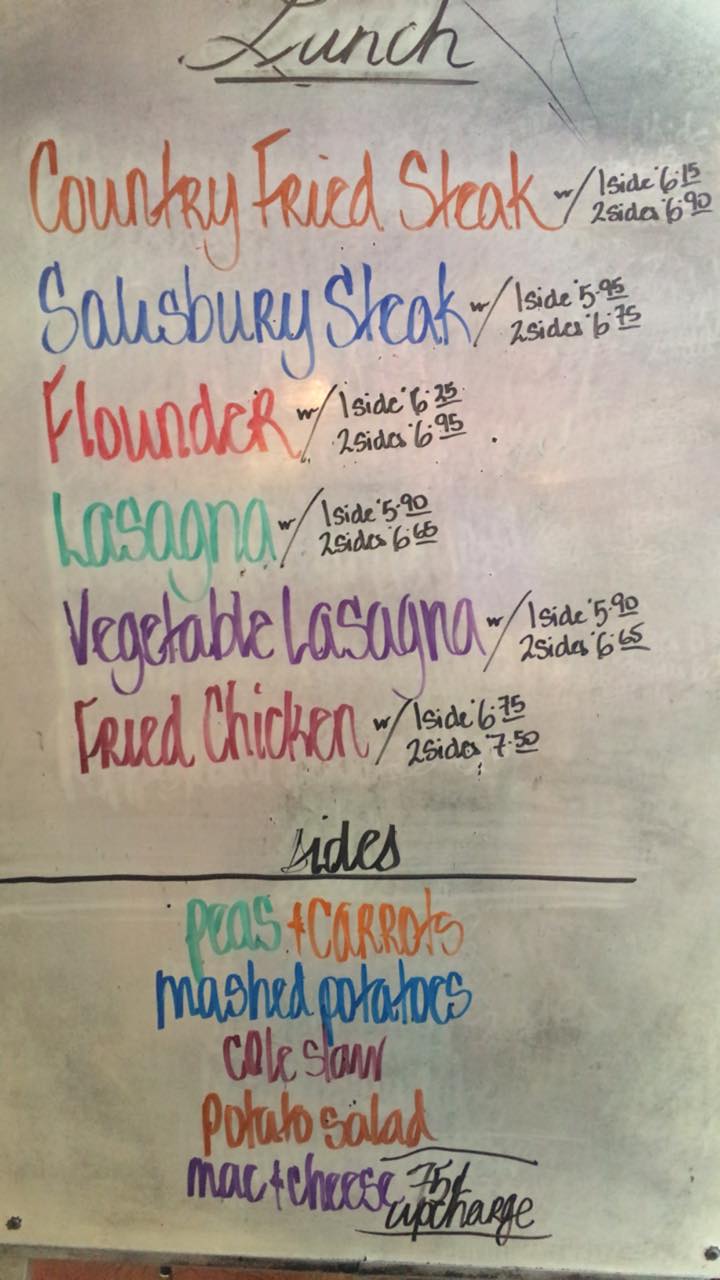 Lunch
Country Fried Steak w/ 1 side 6.15
2 sides 6.90
Salisbury Steak w/ 1 side 5.95
2 sides 6.75
Flounder w/ 1 side 6.25
2 sides 6.95
Lasagna w/ 1 side 5.90
2 sides 6.65
Vegetable Lasagna w/ 1 side 5.90
2 sides 6.65
Fried Chicken w/ 1 side 6.75
2 sides 7.50
sides
peas & carrots
mashed potatoes
cole slaw
potato salad
mac & cheese 75¢
upcharge